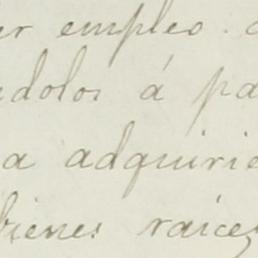 er empleo.
edolos á pa
a adquirie
bienes raíces